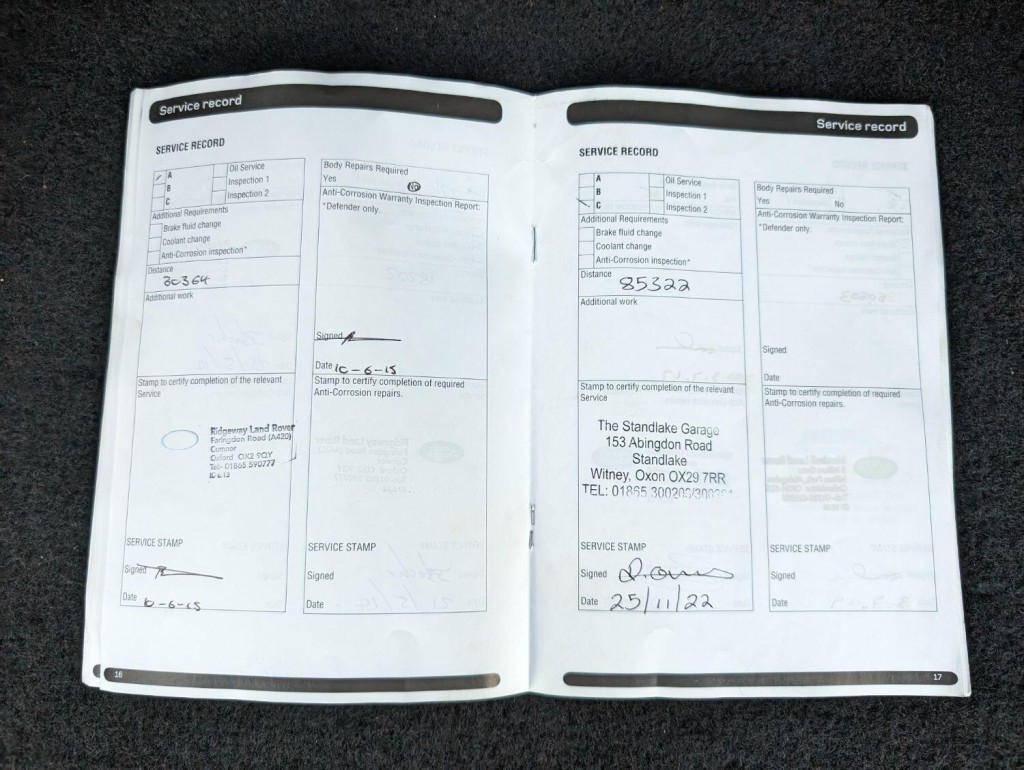 Service record
SERVICE RECORD
A
B
C
Oil Service
Inspection 1
Inspection 2
Additional Requirements
Brake fluid change
Coolant change
Anti-Corrosion inspection*
Distance
30364
Additional work
Stamp to certify completion of the relevant
Service
Ridgeway Land Rover
Faringdon Road (A420)
Cumnor
Oxford OX2 9QY
Tel:- 01865 590777
SERVICE STAMP
Signed
Date 10-6-15
Body Repairs Required
Yes No
Anti-Corrosion Warranty Inspection Report:
*Defender only.
Signed
Date 10-6-15
Stamp to certify completion of required
Anti-Corrosion repairs.
SERVICE STAMP
Signed
Date
16
Service record
SERVICE RECORD
A
B
C
Oil Service
Inspection 1
Inspection 2
Additional Requirements
Brake fluid change
Coolant change
Anti-Corrosion inspection*
Distance
85322
Additional work
Stamp to certify completion of the relevant
Service
The Standlake Garage
153 Abingdon Road
Standlake
Witney, Oxon OX29 7RR
TEL: 01865 300203/
SERVICE STAMP
Signed
Date 25/11/22
Body Repairs Required
Yes No
Anti-Corrosion Warranty Inspection Report:
*Defender only.
Signed
Date
Stamp to certify completion of required
Anti-Corrosion repairs.
SERVICE STAMP
Signed
Date
17